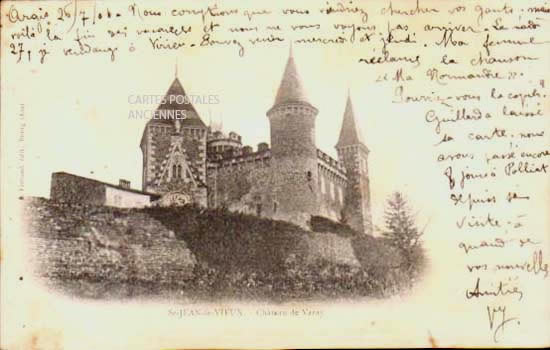 Argis 26/7/06. Nous comptions que vous viendriez chercher vos gants, mais
voilà la fin des vacances et nous ne vous voyons pas arriver. Le
27, je vendangé à Virieu. Pouvez venir mercredi et jeudi. Ma femme
réclame la chanson
"Ma Normandie".
Pourriez-vous la copier
Guillard a laissé
sa carte. nous
avons passé encore
jours à Polliat
depuis sa
visite. à
quand de
vos nouvelles
Amitiés
CARTES POSTALES
ANCIENNES
St-JEAN-le-VIEUX. - Château de Varey